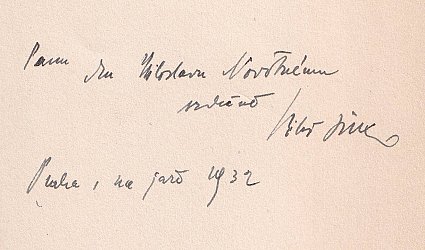 Panu dru Miloslavu Novotnému
srdečně
Praha, na jaře 1932